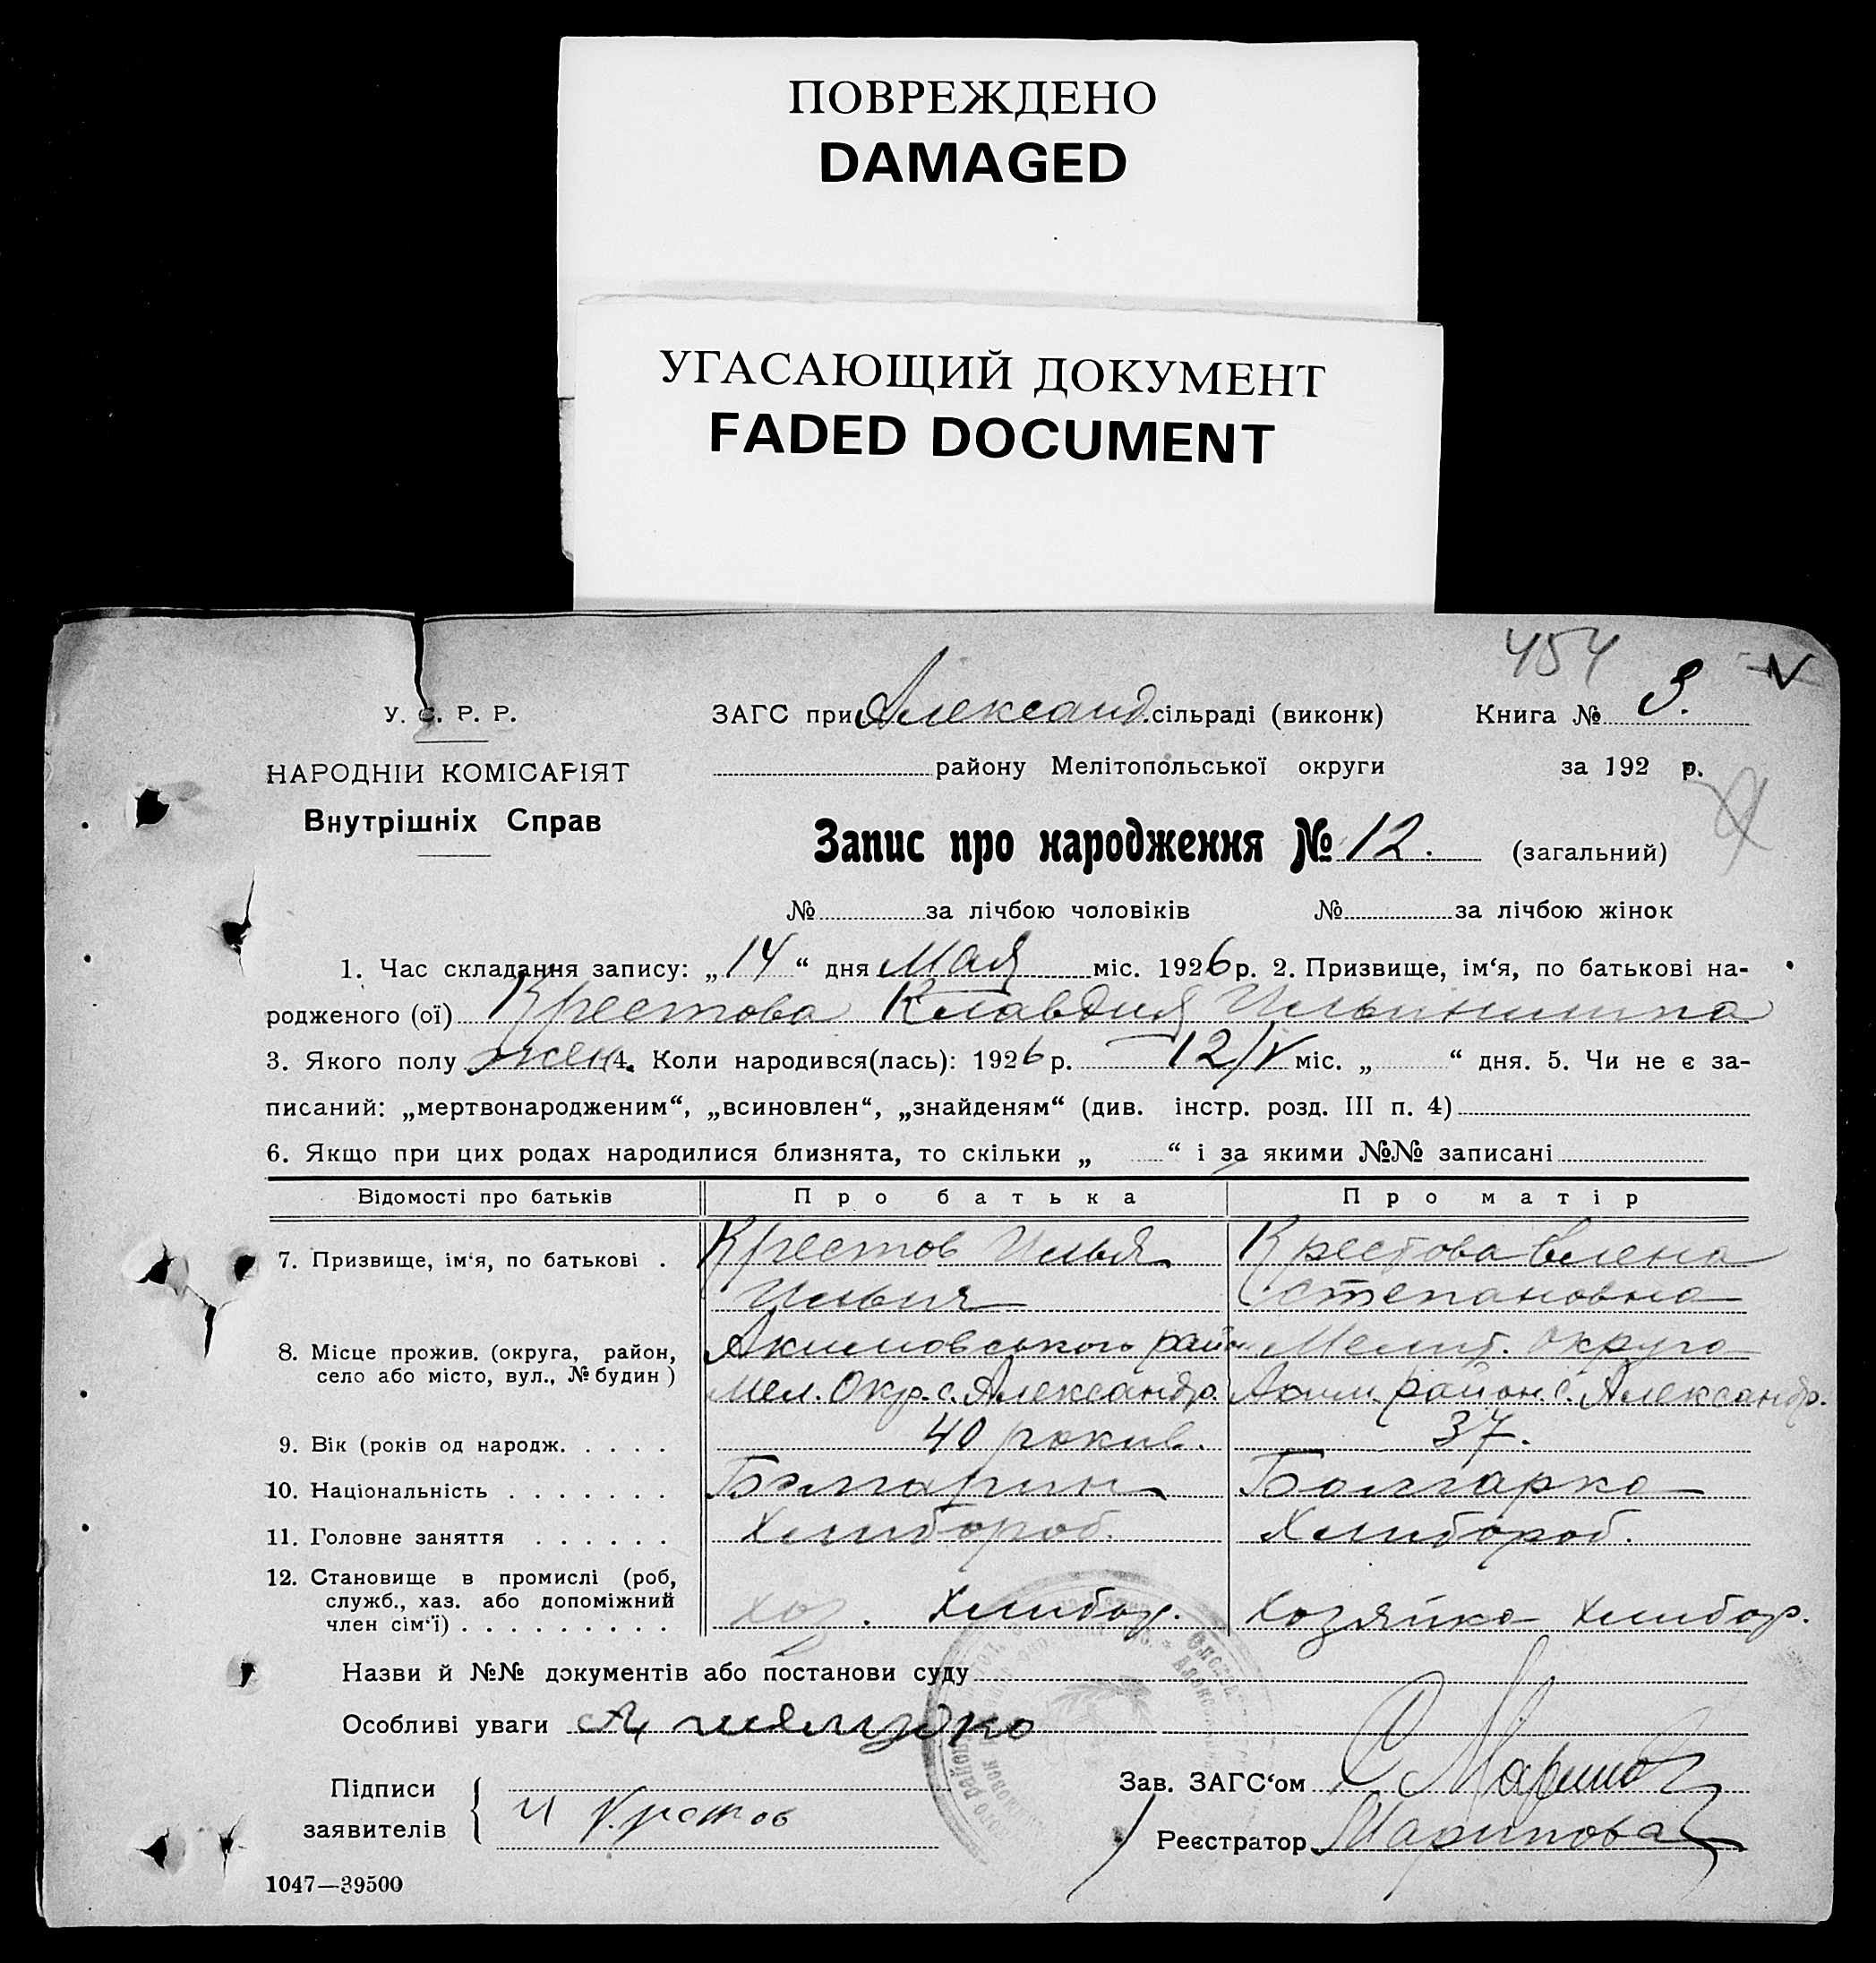 ПОВРЕЖДЕНО
DAMAGED
УГАСАЮЩИЙ ДОКУМЕНТ
FADED DOCUMENT
454
У. С. Р. Р. ЗАГС при Александ. сільраді (виконк) Книга № 3.
НАРОДНІЙ КОМІСАРІЯТ району Мелітопольської округи за 192 р.
Внутрішніх Справ
Запис про народження № 12. (загальний)
№ за лічбою чоловіків № за лічбою жінок
1. Час складання запису: „14“ дня Мая міс. 1926 р. 2. Призвище, ім‘я, по батькові на-
родженого (ої) Крестова Клавдия Ильинишна
3. Якого полу жен 4. Коли народився(лась): 1926 р. 12/V міс. „ “ дня. 5. Чи не є за-
писаний: „мертвонародженим“, „всиновлен“, „знайденям“ (див. інстр. розд. III п. 4)
6. Якщо при цих родах народилися близнята, то скільки „ “ і за якими №№ записані
Відомості про батьків Про батька Про матір
7. Призвище, ім‘я, по батькові . Крестов Илья Крестова Елена
Ильич Степановна
8. Місце прожив. (округа, район, Акимовського райо Мелит. округа
село або місто, вул., № будин) Мел. Окр. с. Александр. Аким. район с. Александр.
9. Вік (років од народж. . . . . 40 рокив. 37.
10. Національність . . . . . . . Болгарин Болгарка
11. Головне заняття . . . . . . Хлибороб. Хлибороб.
12. Становище в промислі (роб,
служб., хаз. або допоміжний Хоз. Хлибор. Хозяйка Хлибор.
член сім‘ї) . . . . . . . . .
Назви й №№ документів або постанови суду
Особливі уваги
Підписи Зав. ЗАГС‘ом С Маринов
заявителів И Крстов Реєстратор Маринова
1047—39500